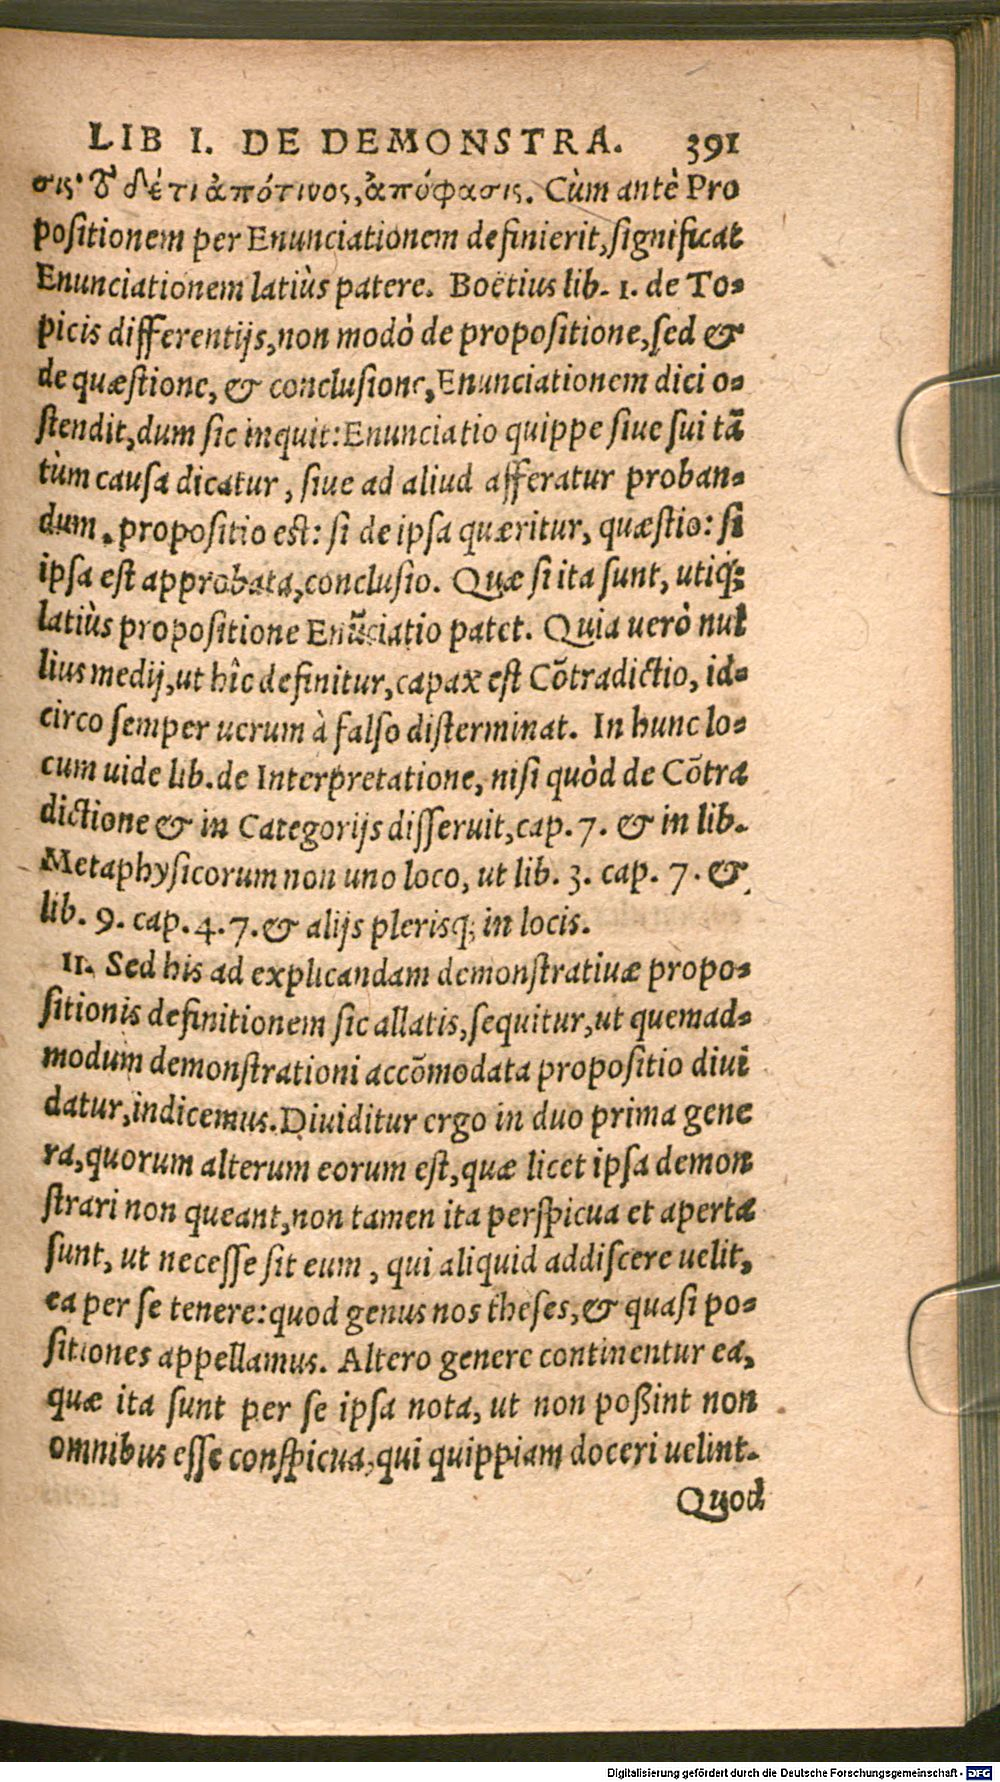 LIB I. DE DEMONSTRA. 391
σις· τὸ δέ τι ἀπό τινος, ἀπόφασις. Cùm antè Pro
positionem per Enunciationem definierit, significat
Enunciationem latiùs patere. Boëtius lib. 1. de To-
picis differentijs, non modò de propositione, sed &
de quæstione, & conclusione, Enunciationem dici o-
stendit, dum sic inquit: Enunciatio quippe siue sui tã
tùm causa dicatur, siue ad aliud afferatur proban-
dum, propositio est: si de ipsa quæritur, quæstio: si
ipsa est approbata, conclusio. Quæ si ita sunt, utiq;
latiùs propositione Enũciatio patet. Quia uerò nul
lius medij, ut hîc definitur, capax est Cõtradictio, id-
circo semper uerum à falso disterminat. In hunc lo-
cum uide lib. de Interpretatione, nisi quòd de Cõtra
dictione & in Categorijs disseruit, cap. 7. & in lib.
Metaphysicorum non uno loco, ut lib. 3. cap. 7. &
lib. 9. cap. 4. 7. & alijs plerisq; in locis.
II. Sed his ad explicandam demonstratiuæ propo-
sitionis definitionem sic allatis, sequitur, ut quemad-
modum demonstrationi accõmodata propositio diui
datur, indicemus. Diuiditur ergo in duo prima gene
ra, quorum alterum eorum est, quæ licet ipsa demon
strari non queant, non tamen ita perspicua et aperta
sunt, ut necesse sit eum, qui aliquid addiscere uelit,
ea per se tenere: quod genus nos theses, & quasi po-
sitiones appellamus. Altero genere continentur ea,
quæ ita sunt per se ipsa nota, ut non poßint non
omnibus esse conspicua, qui quippiam doceri uelint.
Quod
Digitalisierung gefördert durch die Deutsche Forschungsgemeinschaft - DFG